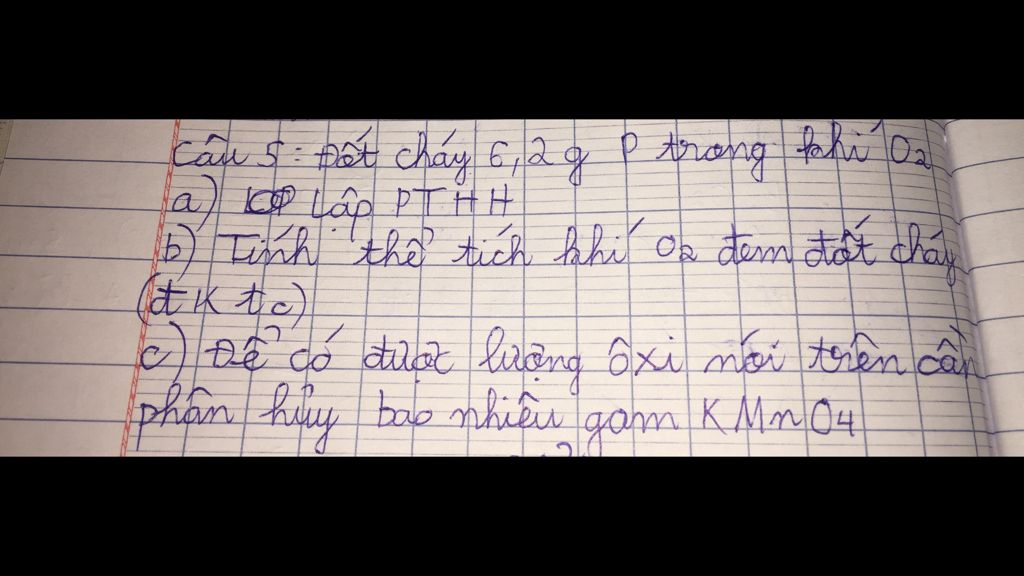 Câu 5: Đốt cháy 6,2g P trong khí O2
a) Lập PTHH
b) Tính thể tích khí O2 đem đốt cháy
(đKtc)
c) Để có được lượng ôxi nói trên cần
phân hủy bao nhiêu gam KMnO4